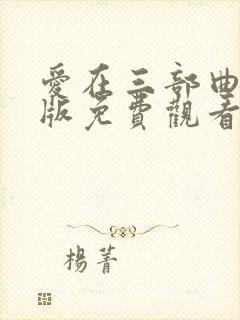 愛在三部曲
版免費觀看
楊菁